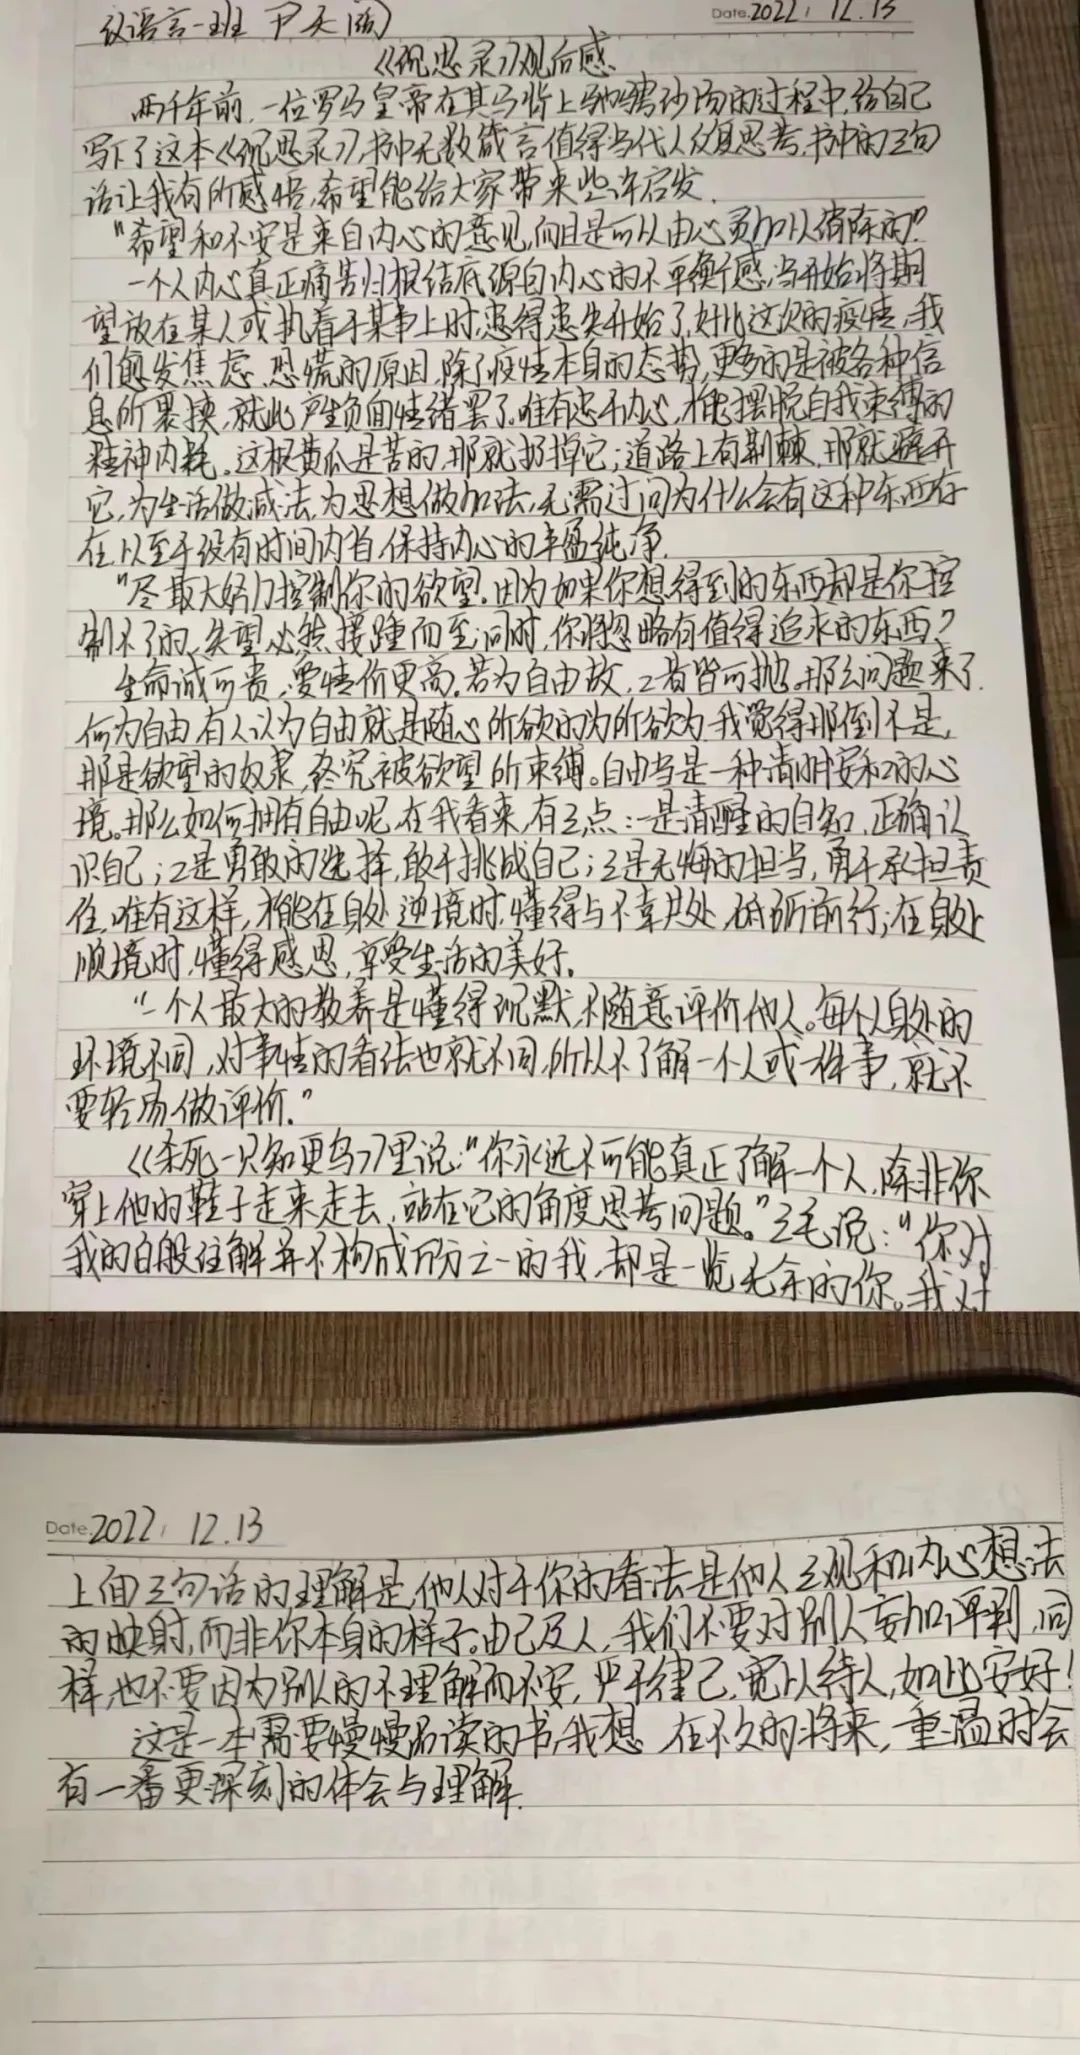 汉语言一班 尹天 Date. 2022. 12.13
《沉思录》观后感
两千年前,一位罗马皇帝在其马背上驰骋沙场的过程中,给自己
写下了这本《沉思录》,书中无数箴言值得当代人反复思考,书中的三句
话让我有所感悟,希望能给大家带来些许启发.
"希望和不安是来自内心的意见,而且是可以由心灵加以消除的"
一个人内心真正痛苦归根结底源自内心的不平衡感,当开始将期
望放在某人或执着于某事上时,患得患失开始了,好比这次的疫情,我
们愈发焦虑、恐慌的原因,除了疫情本身的态势,更多的是被各种信
息所裹挟,就此产生负面情绪罢了.唯有忠于内心,才能摆脱自我束缚的
精神内耗。这根黄瓜是苦的,那就扔掉它;道路上有荆棘,那就避开
它,为生活做减法,为思想做加法,无需过问为什么会有这种东西存
在,以至于没有时间内省,保持内心的丰盈纯净.
"尽最大努力控制你的欲望.因为如果你想得到的东西却是你控
制不了的,失望必然接踵而至,同时,你将忽略有值得追求的东西?
生命诚可贵,爱情价更高.若为自由故,2者皆可抛。那么问题来了.
何为自由,有人认为自由就是随心所欲的为所欲为,我觉得那倒不是,
那是欲望的奴隶,终究被欲望所束缚。自由当是一种清明安和的心
境。那么如何拥有自由呢,在我看来,有三点:一是清醒的自知,正确认
识自己;2是勇敢的选择,敢于挑战自己;3是无悔的担当,勇于承担责
任,唯有这样,才能在身处逆境时,懂得与不幸共处,砥砺前行;在身处
顺境时,懂得感恩,享受生活的美好.
"一个人最大的教养是懂得沉默,不随意评价他人。每个人身处的
环境不同,对事情的看法也就不同,所以不了解一个人或一件事,就不
要轻易做评价."
《杀死一只知更鸟》里说:"你永远不可能真正了解一个人,除非你
穿上他的鞋子走来走去,站在它的角度思考问题。"三毛说:"你对
我的百般注解并不构成万分之一的我,却是一览无余的你。我对
Date. 2022. 12.13
上面三句话的理解是,他人对于你的看法是他人三观和内心想法
的映射,而非你本身的样子。由己及人,我们不要对别人妄加评判,同
样,也不要因为别人的不理解而不安,严于律己,宽以待人,如此安好!
这是一本需要慢慢品读的书,我想,在不久的将来,重温时会
有一番更深刻的体会与理解.